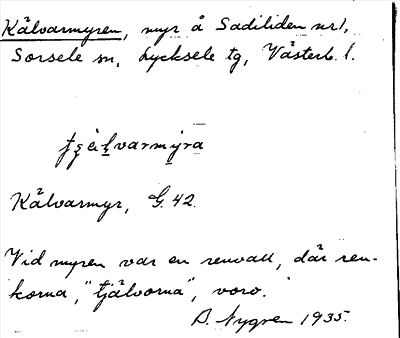 Kälvarmyren, myr å Sadiliden nr 1,
Sorsele sn, Lycksele tg, Västerb. l.
Kälvarmyr, G. 42.
Vid myren var en renvall, där ren-
korna, "tjälvorna", voro.
D. Nygren 1935.